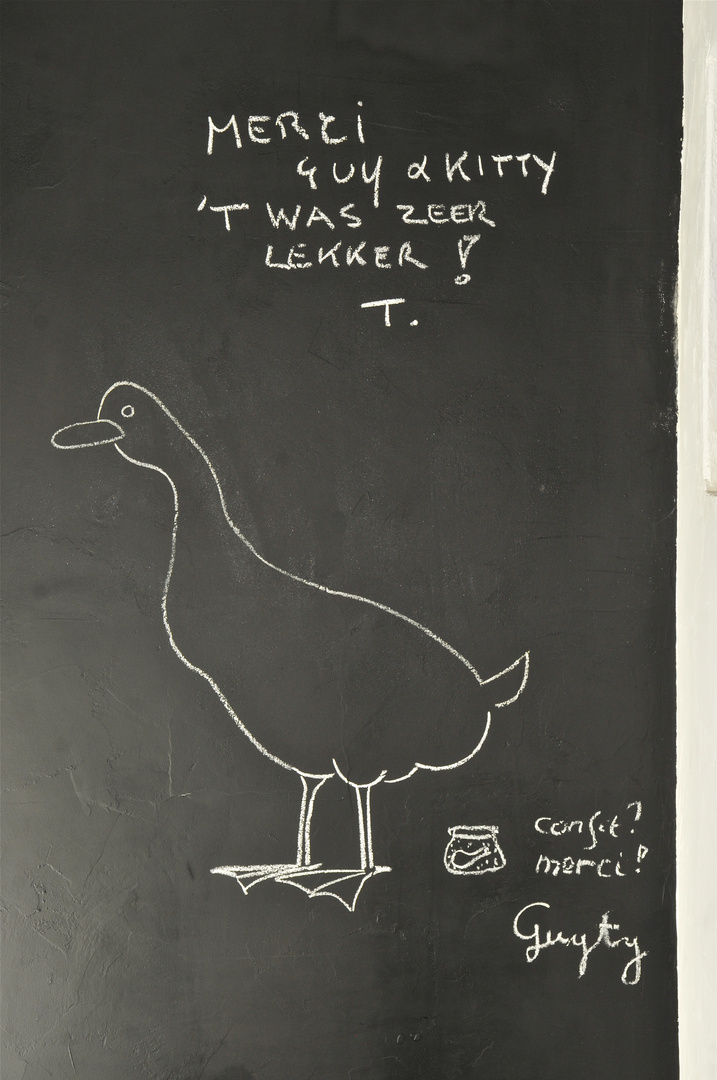 MERCI
GUY & KITTY
'T WAS ZEER
LEKKER !
T.
confit?
merci!
Guyty